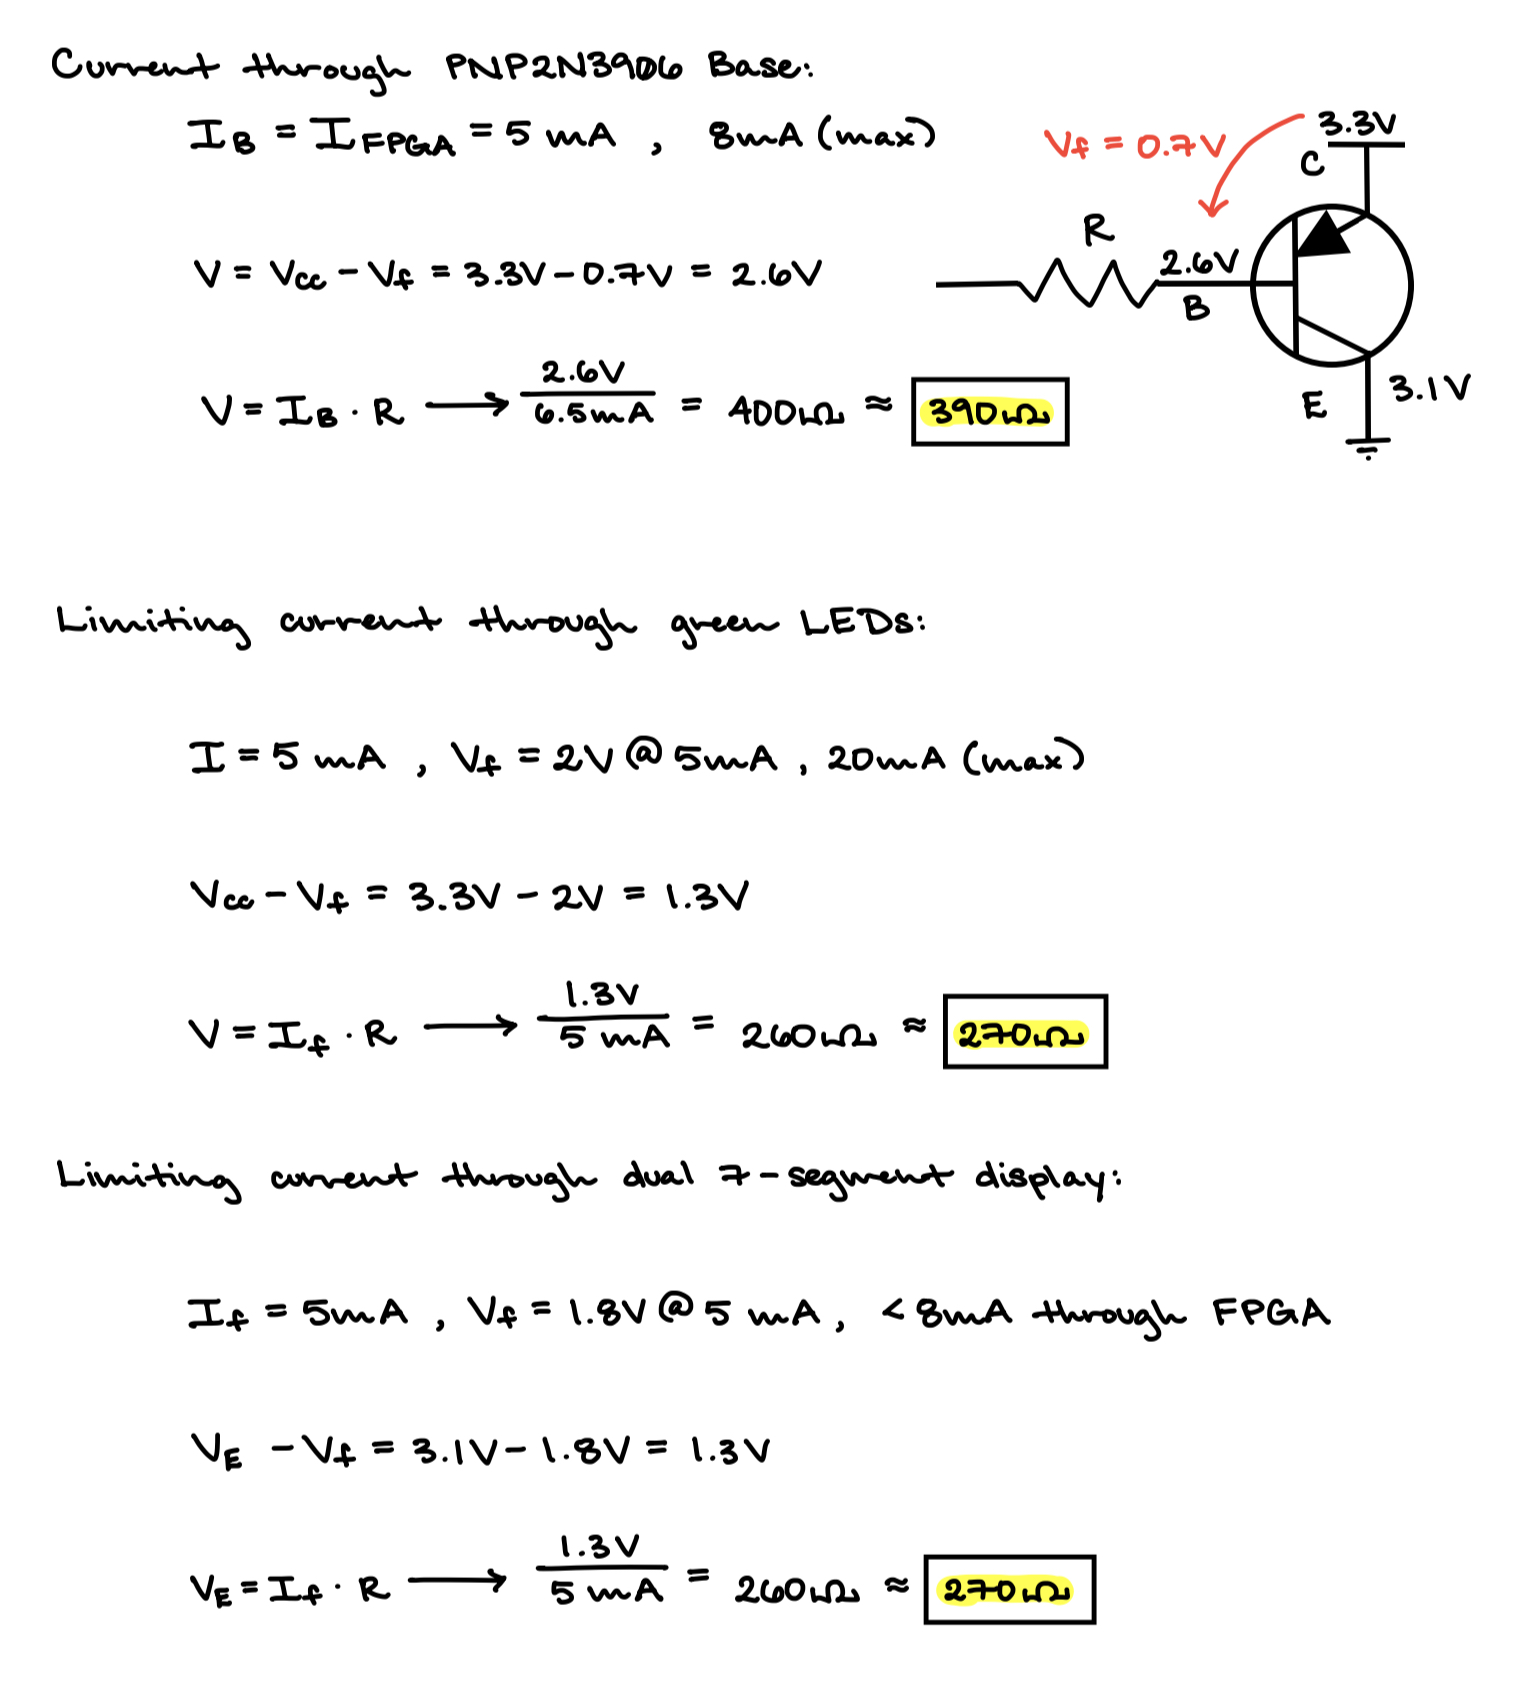 Current through PNP2N3906 Base:
I_B = I_FPGA = 5 mA , 8mA (max)
V_f = 0.7V
3.3V
C
R
2.6V
B
E
3.1V
V = V_cc - V_f = 3.3V - 0.7V = 2.6V
V = I_B · R ⟶ 2.6V / 6.5mA = 400Ω ≈ 390Ω
Limiting current through green LEDs:
I = 5 mA , V_f = 2V @ 5mA , 20mA (max)
V_cc - V_f = 3.3V - 2V = 1.3V
V = I_f · R ⟶ 1.3V / 5 mA = 260Ω ≈ 270Ω
Limiting current through dual 7-segment display:
I_f = 5mA , V_f = 1.8V @ 5 mA , <8mA through FPGA
V_E - V_f = 3.1V - 1.8V = 1.3V
V_E = I_f · R ⟶ 1.3V / 5 mA = 260Ω ≈ 270Ω